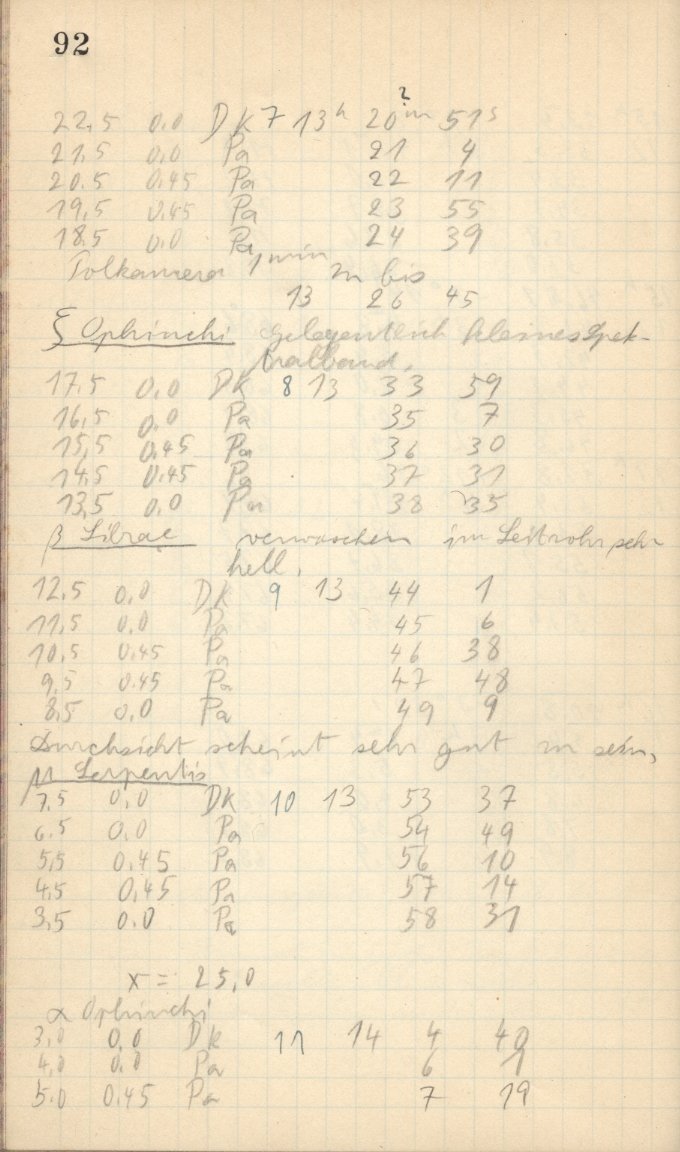 92
2
22,5 0.0 DK 7 13h 20m 51s
21,5 0.0 Pa 21 4
20.5 0.45 Pa 22 11
19,5 0.45 Pa 23 55
18.5 0.0 Pa 24 39
Polkamera 1 min zu bis
13 26 45
ξ Ophiuchi gelegentlich kleines Spek-
tralband.
17,5 0.0 DK 8 13 33 59
16,5 0.0 Pa 35 7
15,5 0.45 Pa 36 30
14,5 0.45 Pa 37 31
13,5 0.0 Pa 38 35
β Librae verwaschen im Leitrohr sehr
hell.
12,5 0.0 DK 9 13 44 1
11,5 0.0 Pa 45 6
10,5 0.45 Pa 46 38
9,5 0.45 Pa 47 48
8,5 0.0 Pa 49 9
Durchsicht scheint sehr gut zu sein,
μ Serpentis
7,5 0.0 DK 10 13 53 37
6.5 0.0 Pa 54 49
5,5 0.45 Pa 56 10
4,5 0,45 Pa 57 14
3,5 0.0 Pa 58 31
x = 25,0
α Ophiuchi
3,0 0.0 DK 11 14 4 40
4,0 0.0 Pa 6 1
5.0 0.45 Pa 7 19